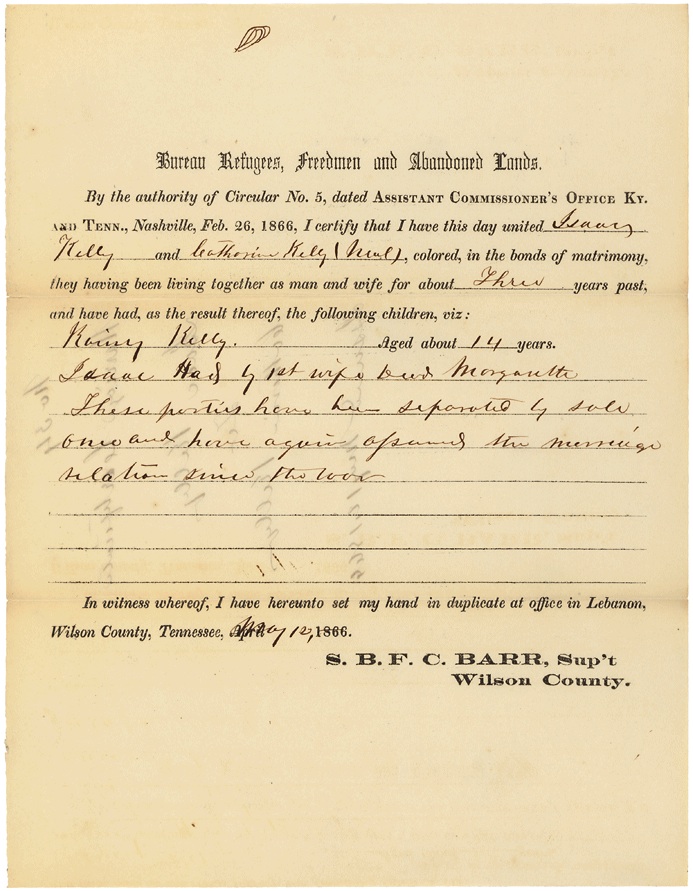 Bureau Refugees, Freedmen and Abandoned Lands.
By the authority of Circular No. 5, dated ASSISTANT COMMISSIONER'S OFFICE KY.
AND TENN., Nashville, Feb. 26, 1866, I certify that I have this day united Isaac
Kelly and Catharine Kelly (Mul), colored, in the bonds of matrimony,
they having been living together as man and wife for about Three years past,
and have had, as the result thereof, the following children, viz:
Kelly. Aged about 14 years.
Isaac Had by 1st wife Dead Morgarette
These parties have been separated by sale
once and have again assumed the marriage
relation since the war
In witness whereof, I have hereunto set my hand in duplicate at office in Lebanon,
Wilson County, Tennessee, May 12, 1866.
S. B. F. C. BARR, Sup't
Wilson County.